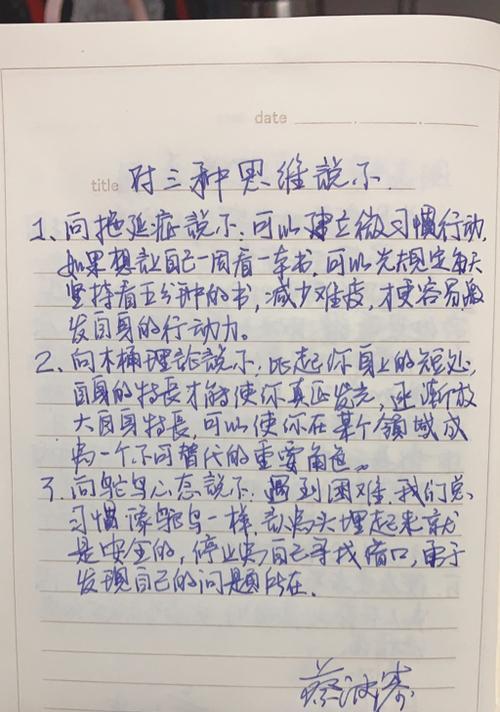 date
title 对三种思维说不.
1、向拖延症说不，可以建立微习惯行动，
如果想让自己一周看一本书，可以先规定每天
坚持看五分钟的书，减少难度，才更容易激
发自身的行动力。
2、向木桶理论说不，比起你身上的短处，
自身的特長才能使你真正发光，逐渐放
大自身特長，可以使你在某个领域成
為一个不可替代的重要角色。
3、向鸵鸟心态说不，遇到困难，我们总
习惯像鸵鸟一样，認為头埋起来就
是安全的，停止為自己寻找借口，勇于
发现自己的问题所在.
蔡波